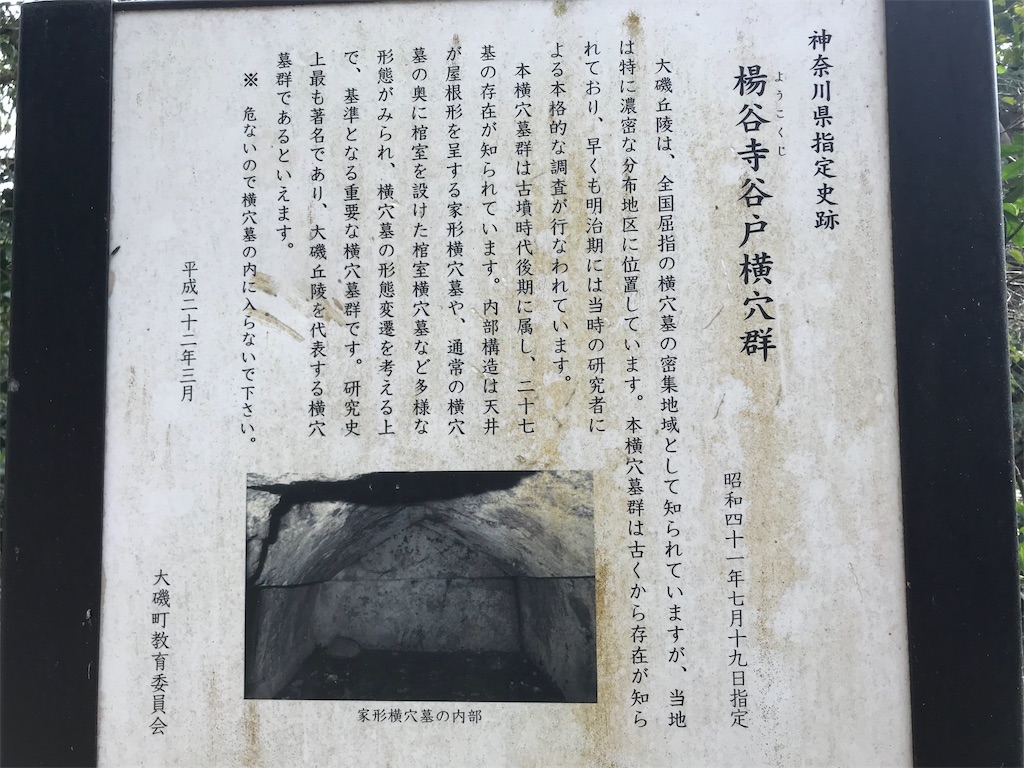 神奈川県指定史跡
ようこくじ
楊谷寺谷戸横穴群
昭和四十一年七月十九日指定
大磯丘陵は、全国屈指の横穴墓の密集地域として知られていますが、当地
は特に濃密な分布地区に位置しています。本横穴墓群は古くから存在が知ら
れており、早くも明治期には当時の研究者に
よる本格的な調査が行なわれています。
本横穴墓群は古墳時代後期に属し、二十七
基の存在が知られています。内部構造は天井
が屋根形を呈する家形横穴墓や、通常の横穴
墓の奥に棺室を設けた棺室横穴墓など多様な
形態がみられ、横穴墓の形態変遷を考える上
で、基準となる重要な横穴墓群です。研究史
上最も著名であり、大磯丘陵を代表する横穴
墓群であるといえます。
※ 危ないので横穴墓の内に入らないで下さい。
平成二十二年三月
大磯町教育委員会
家形横穴墓の内部